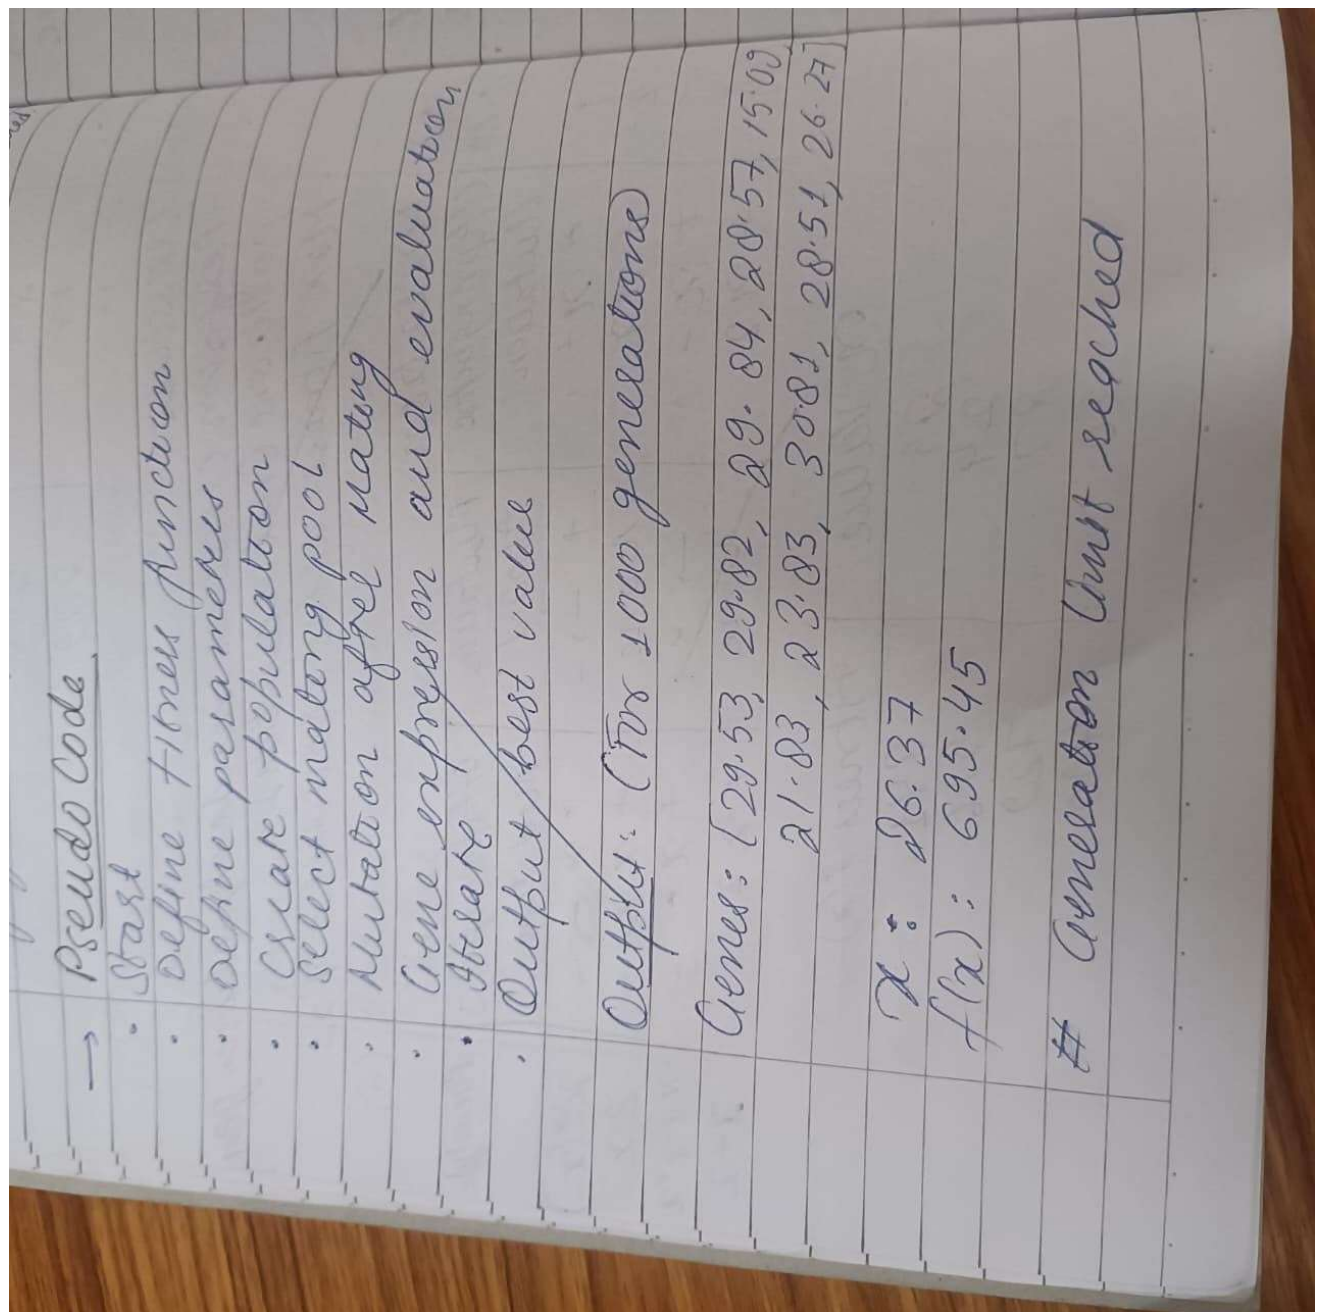 → Pseudo Code
• Start
• Define fitness function
• Define parameters
• Create population
• Select mating pool
• Mutation after mating
• Gene expression and evaluation
• Iterate
• Output best value
Output: (For 1000 generations)
Genes: [29.53, 29.82, 29.84, 28.57, 15.09,
21.83, 23.83, 30.81, 28.51, 26.27]
x: 26.37
f(x): 695.45
# Generation limit reached